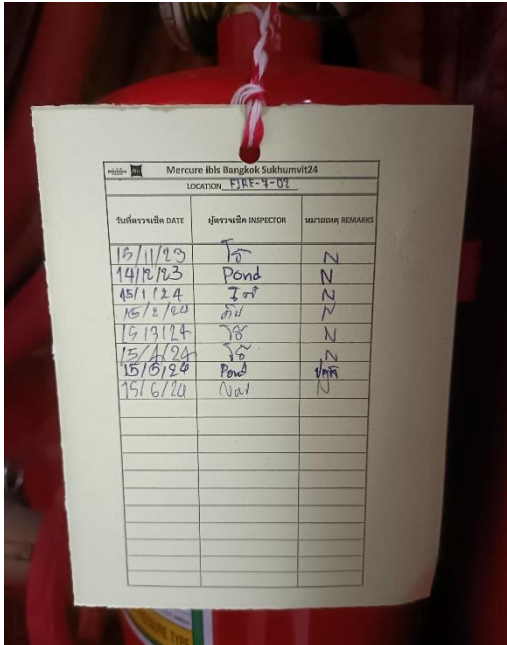 Mercure ibis Bangkok Sukhumvit24
LOCATION FIRE-7-02
วันที่ตรวจเช็ค DATE ผู้ตรวจเช็ค INSPECTOR หมายเหตุ REMARKS
15/11/23 N
14/12/23 Pond N
15/1/24 N
15/2/24 N
15/3/24 N
15/4/24 N
15/5/24 Pond ปกติ
15/6/24 N
PRESSURE TYPE